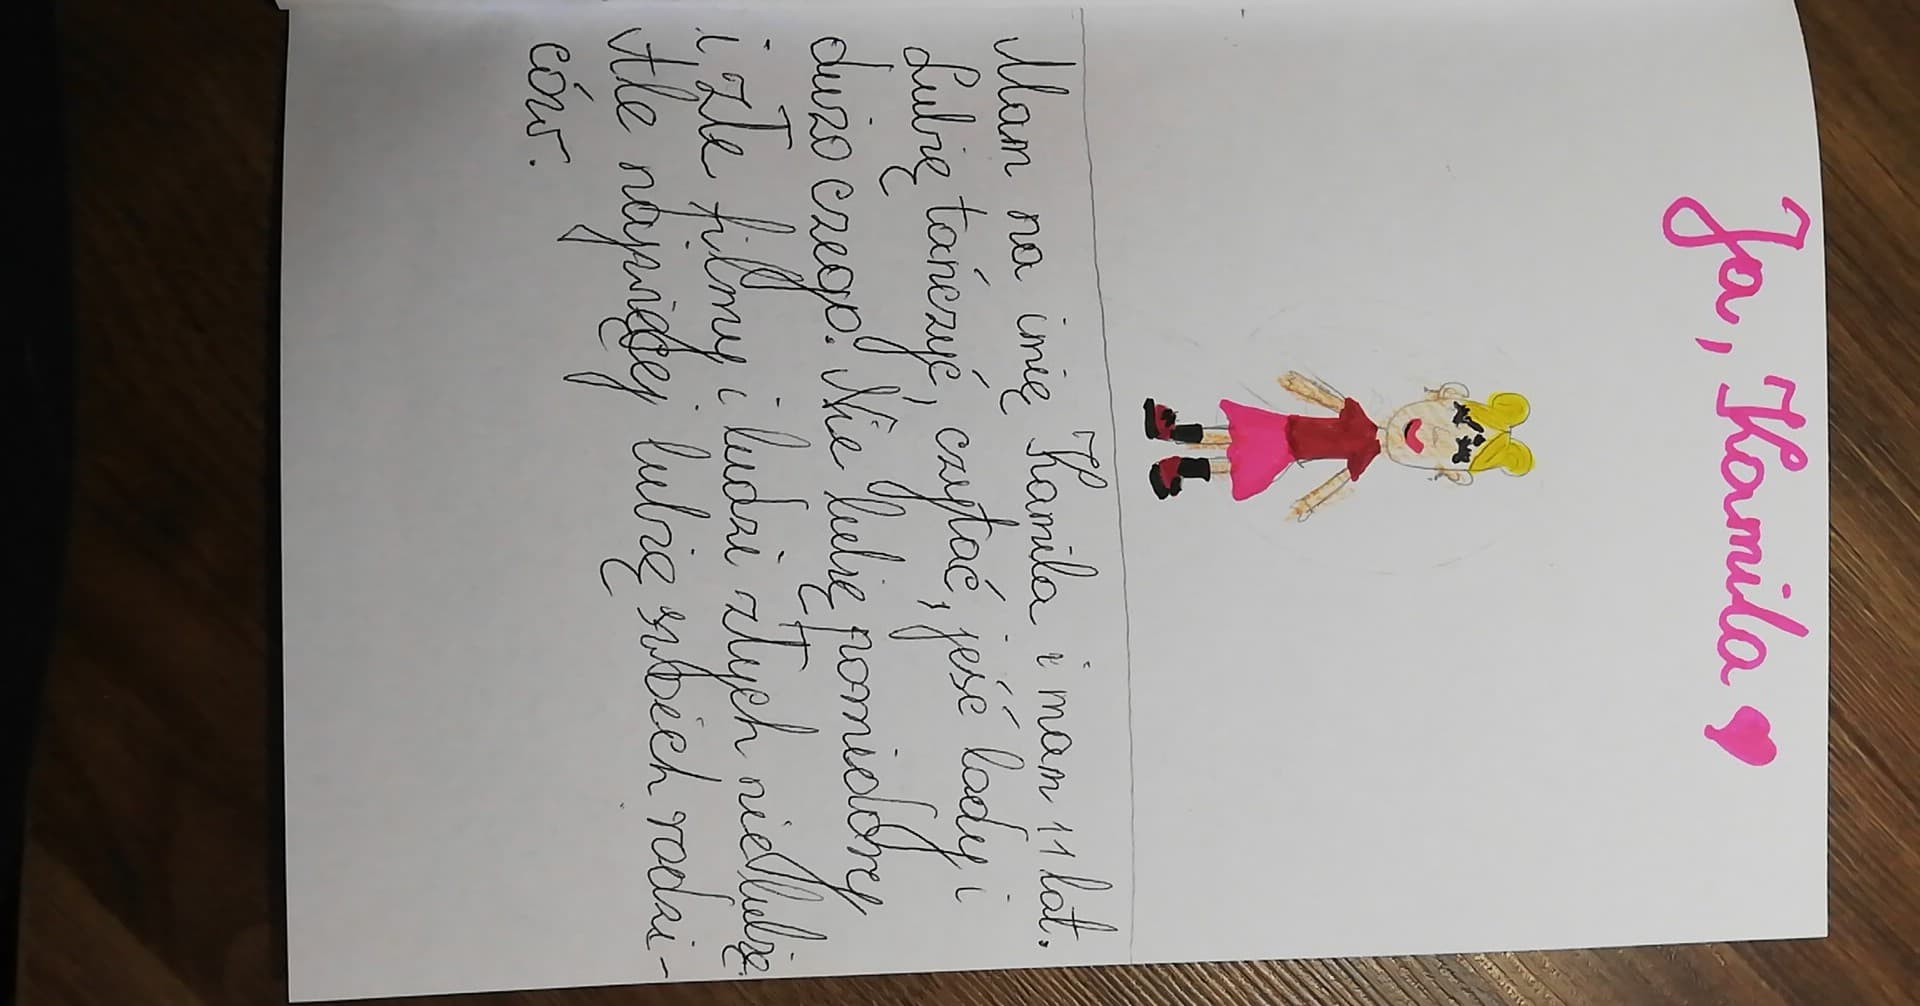 Ja, Kamila
Mam na imię Kamila i mam 11 lat.
Lubię tańczyć, czytać, jeść lody i
dużo czego. Nie lubię pomidory
i złe filmy i ludzi złych nie lubię.
Ale najwięcej lubię swoich rodzi-
ców.